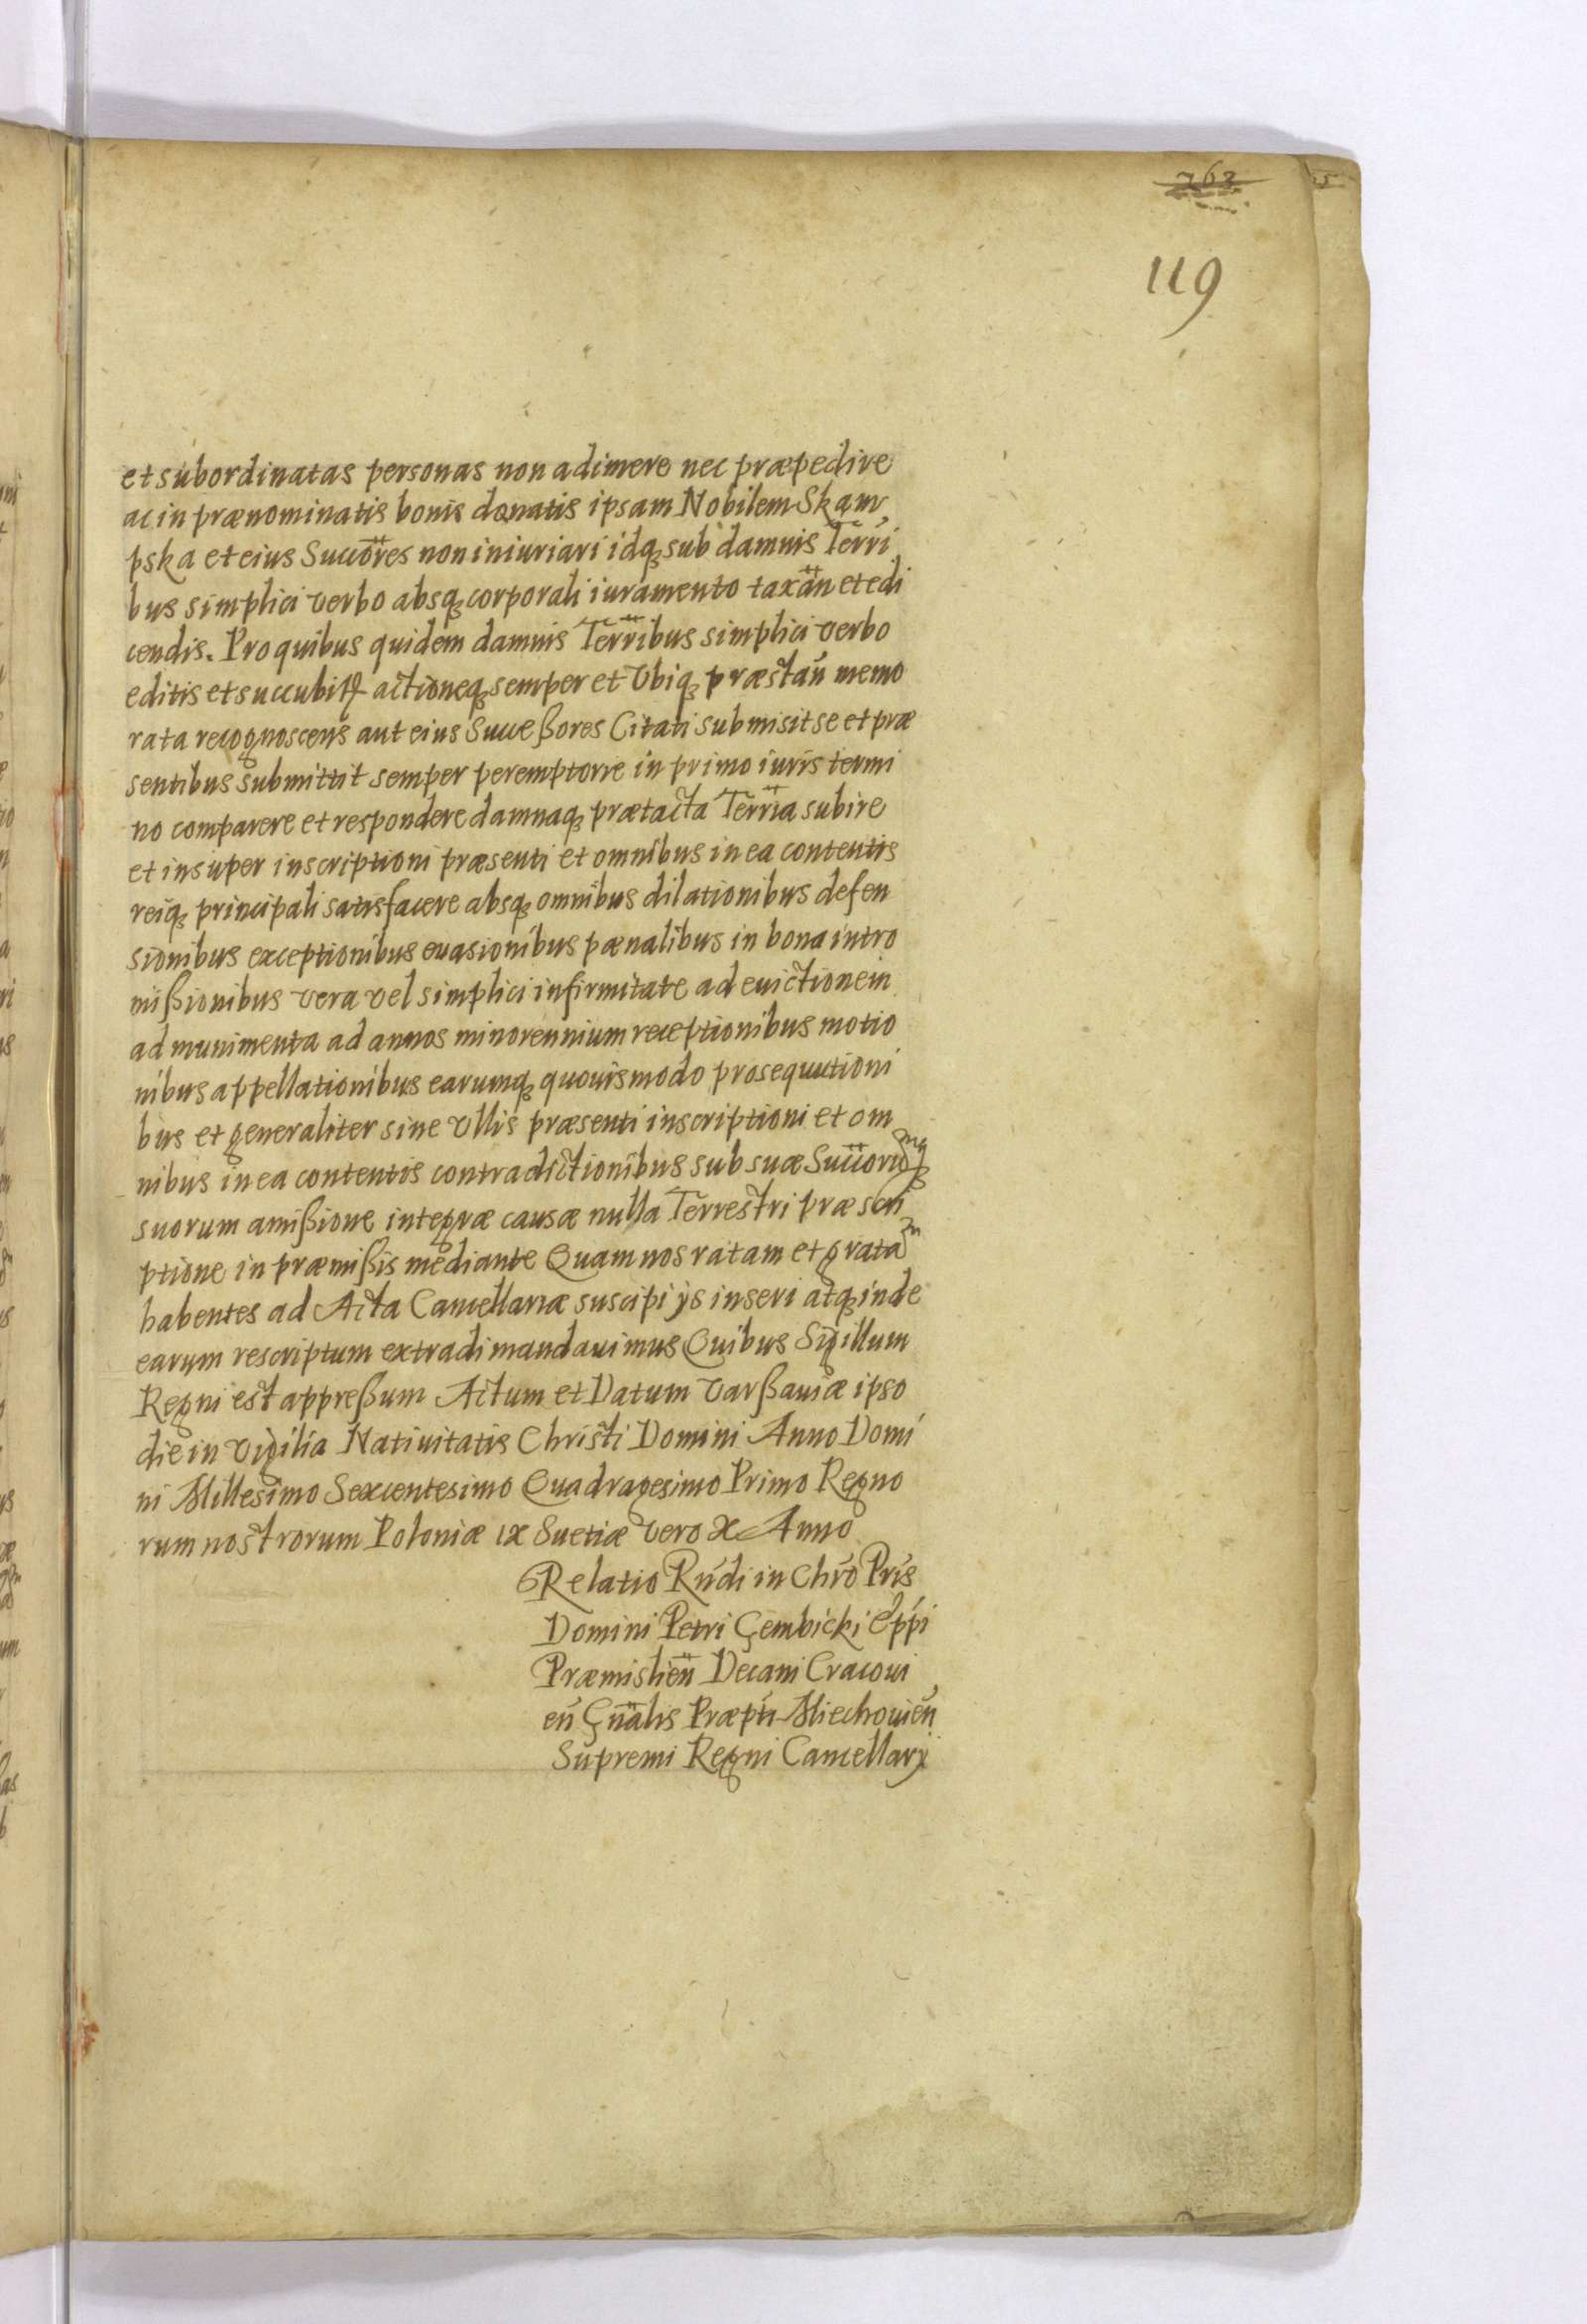 762
119
et subordinatas personas non adimere nec præpedire
ac in prænominatis bonis donatis ipsam Nobilem Skąm
pska et eius Succōres non iniuriari idq; sub damnis Terri
bus simplici verbo absq; corporali iuramento taxān et edi
cendis. Pro quibus quidem damnis Terribus simplici verbo
editis et succubitꝶ actioneq; semper et Vbiq; præstań memo
rata recognoscens aut eius Succeßores Citati submisit se et præ
sentibus submittit semper peremptorie in primo iuris termi
no comparere et respondere damnaq; prætacta Terria subire
et insuper inscriptioni præsenti et omnibus in ea contentis
reiq; principali satisfacere absq; omnibus dilationibus defen
sionibus exceptionibus euasionibus pænalibus in bona intro
mißionibus vera vel simplici infirmitate ad euictionem
ad munimenta ad annos minorennium receptionibus motio
nibus appellationibus earumq; quouismodo prosequutioni
bus et generaliter sine Vllis præsenti inscriptioni et om
nibus in ea contentis contradictionibus sub suæ Succorumq;
suorum amißione integræ causæ nulla Terrestri præscri
ptione in præmißis mediante Quam nos ratam et gratam
habentes ad Acta Cancellariæ suscipi ÿs inseri atq; inde
earum rescriptum extradi mandauimus Quibus Sigillum
Regni est appreßum Actum et Datum Varßauiæ ipso
die in Vigilia Natiuitatis Christi Domini Anno Domi
ni Millesimo Sexcentesimo Quadragesimo Primo Regno
rum nostrorum Poloniæ IX Suetiæ vero X Anno
Relatio Rńdi in Chro Pris
Domini Petri Gembicki Eppi
Præmislień Decani Cracoui
eń Gnalis Præpti Miechouień
Supremi Regni Cancellarÿ